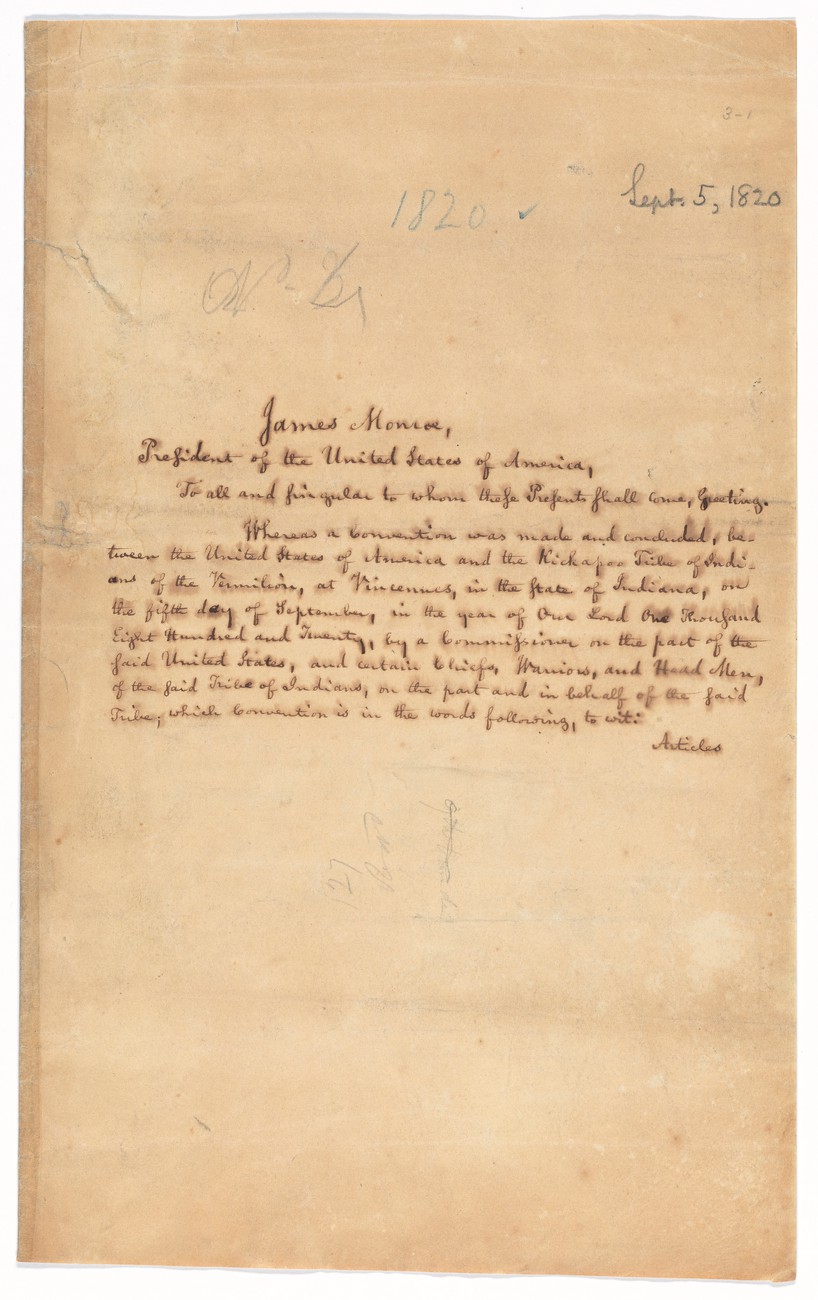 3-1
Sept. 5, 1820
1820.
James Monroe,
President of the United States of America,
To all and singular to whom these Presents shall come, Greeting.
Whereas a Convention was made and concluded, be-
tween the United States of America and the Kickapoo Tribe of Indi-
ans of the Vermilion, at Vincennes, in the State of Indiana, on
the fifth day of September, in the year of Our Lord One Thousand
Eight Hundred and Twenty, by a Commissioner on the part of the
said United States, and certain Chiefs, Warriors, and Head Men,
of the said Tribe of Indians, on the part and in behalf of the said
Tribe; which Convention is in the words following, to wit:
Articles
127